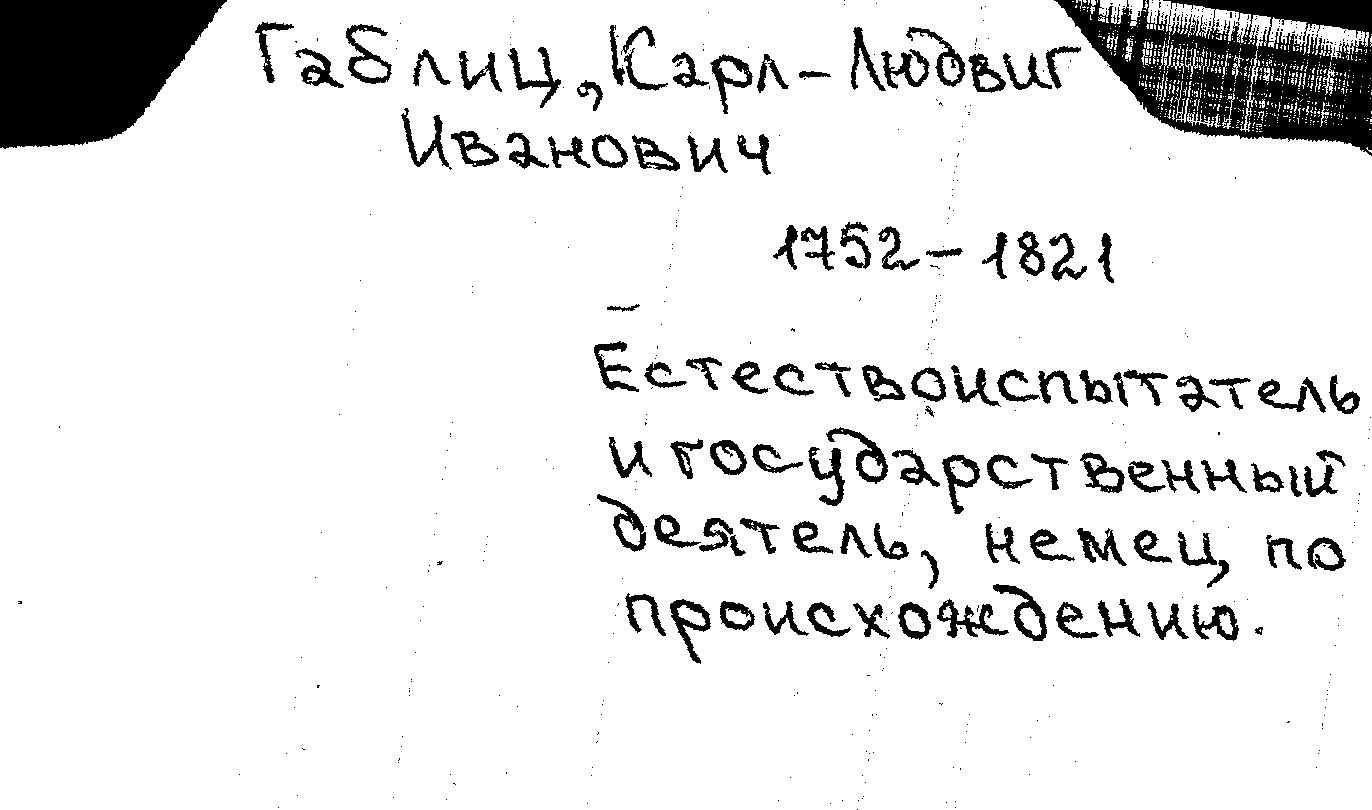 Габлиц, Карл-Людвиг
Иванович
1752-1821
–
Естествоиспытатель
и государственный
деятель, немец по
происхождению.